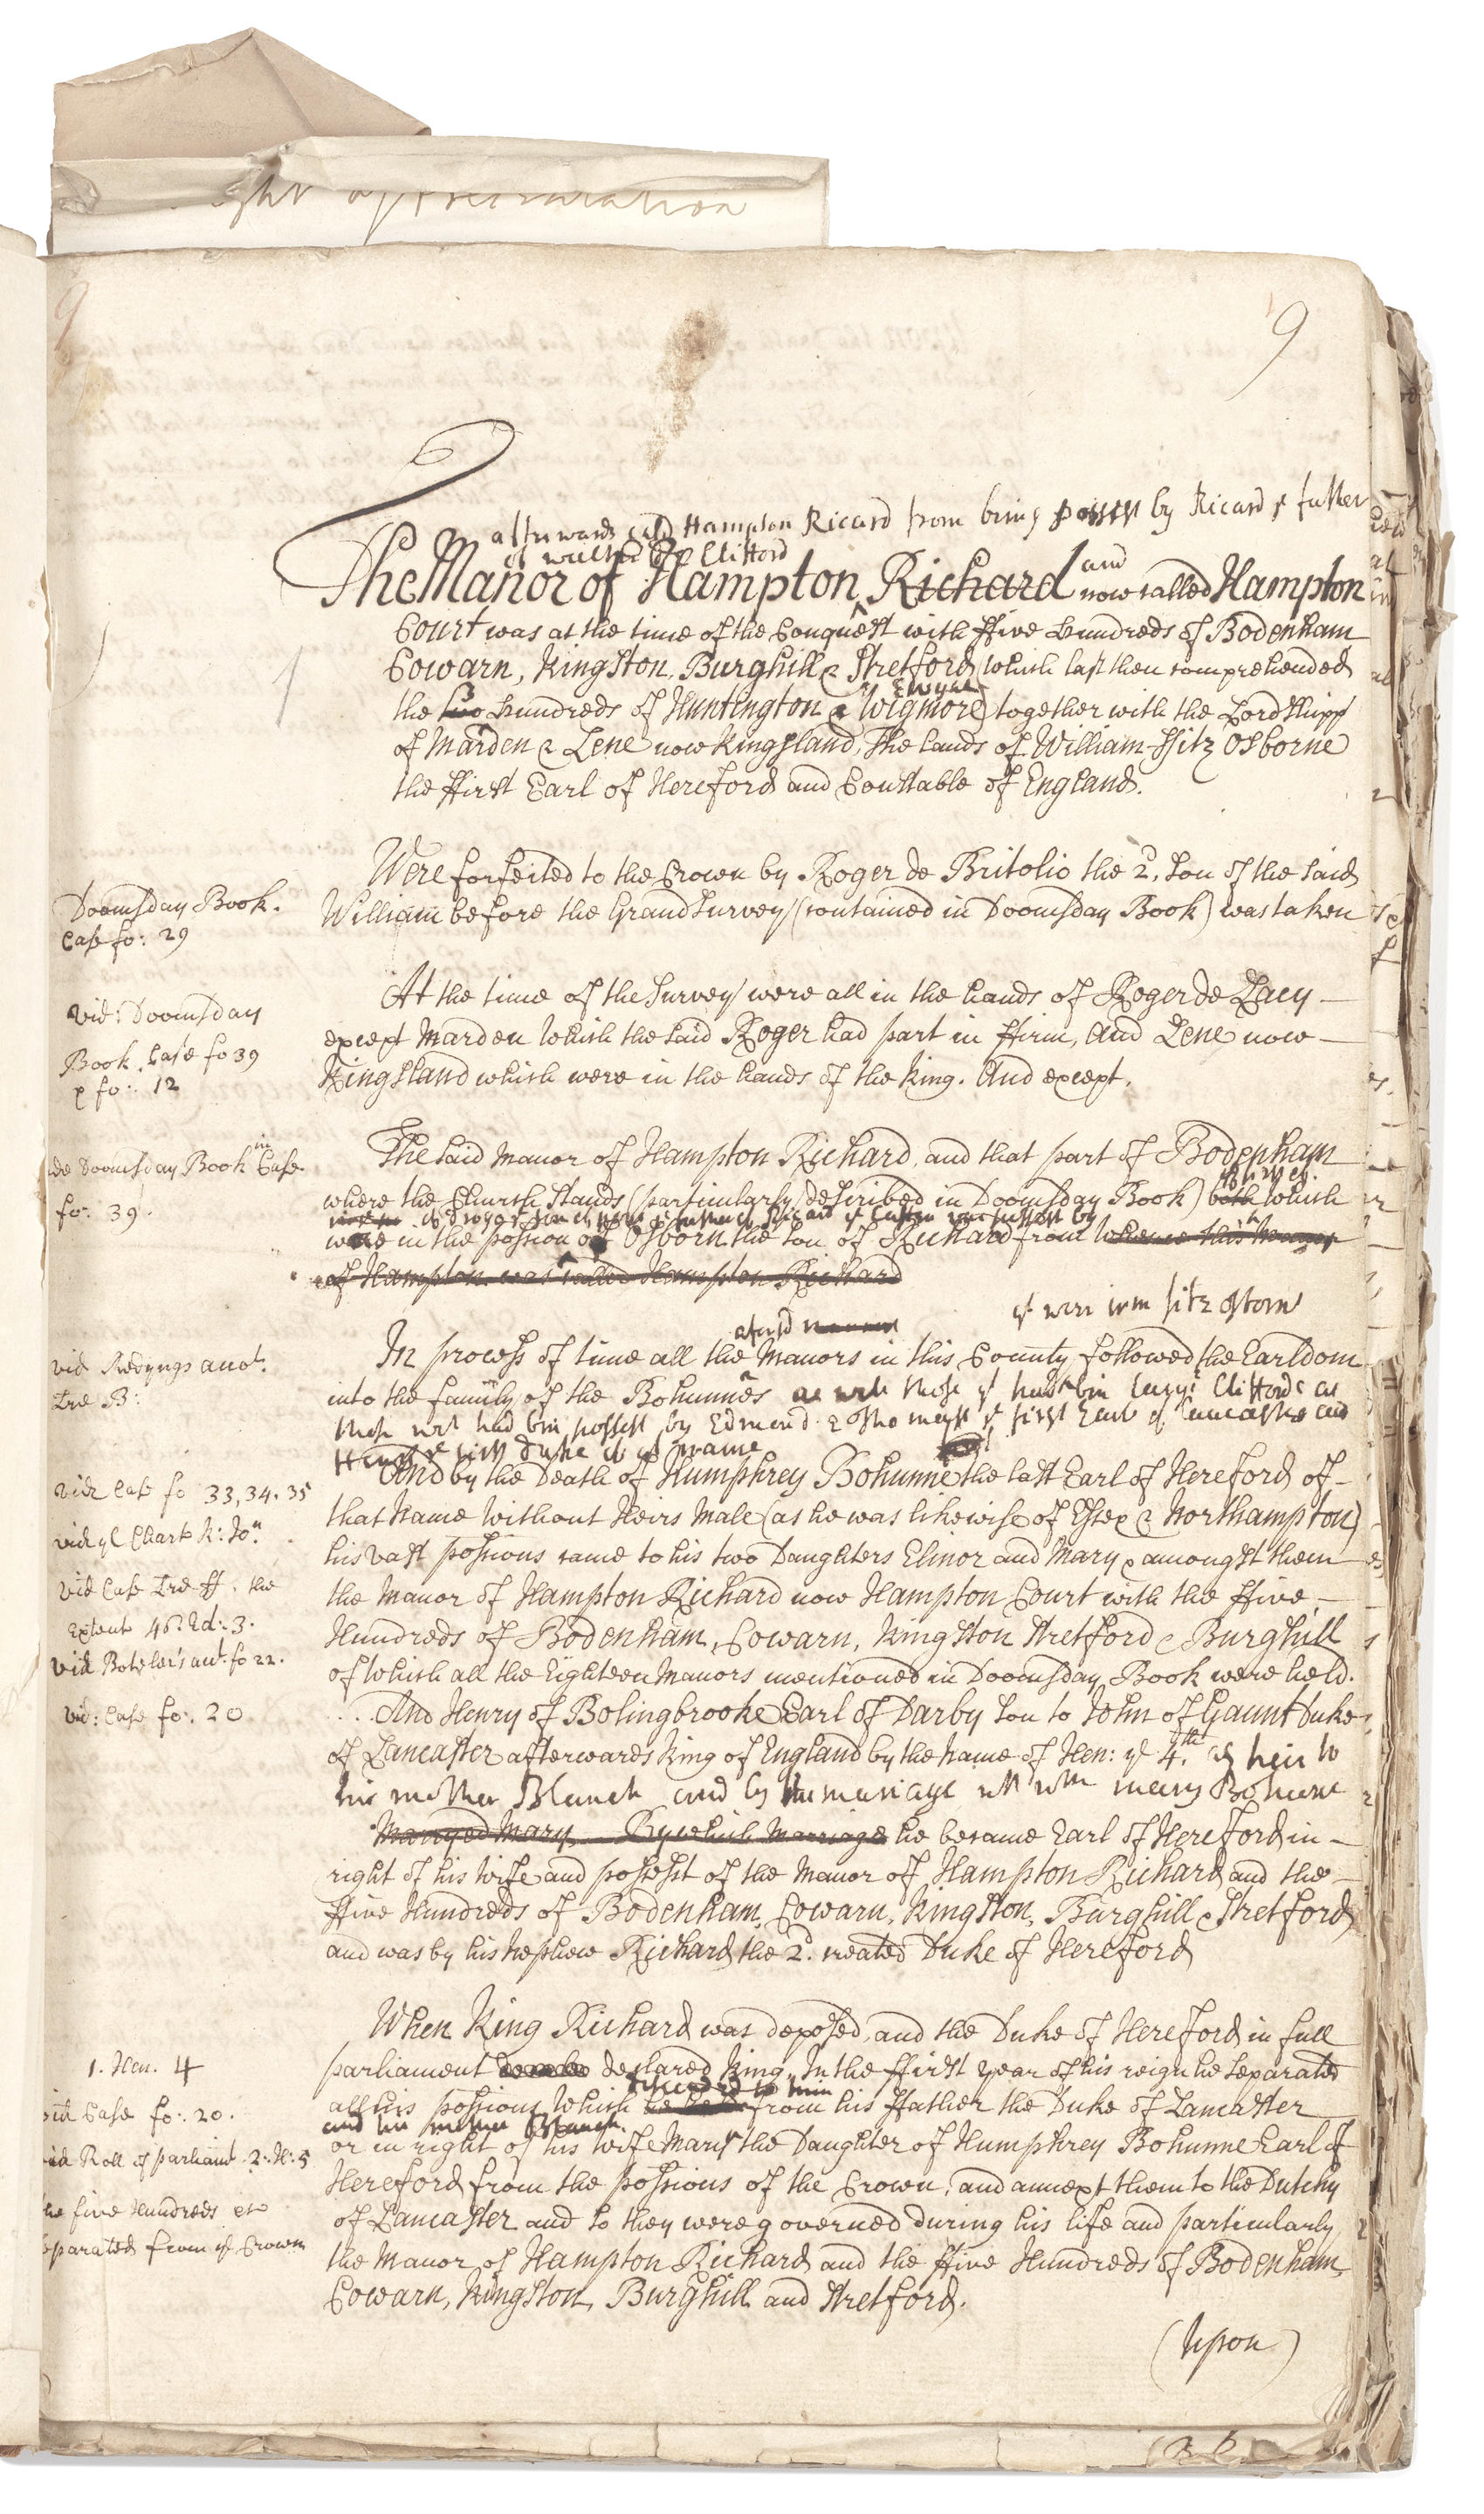 9
9
afterwards cald Hampton Ricard from being possest by Ricard ye father
of Clifford
The Manor of Hampton Richard and now called Hampton
Court was at the time of the Conquest with ffive Hundreds of Bodenham
Cowarn, Kingston, Burghill & Stretford (which last then comprehended
Ewyas
the two Hundreds of Huntington & Wigmore) together with the Lordshipps
of Marden & Lene now Kingsland, The lands of William ffitz Osborne
the ffirst Earl of Hereford and Constable of England.
Were forfeited to the Crown by Roger de Britolio the 2d, son of the said
William before the Grand Survey (contained in Doomsday Book) was taken
Doomsday Book.
Case fo: 29
At the time of the Survey were all in the hands of Roger de Lacy
except Marden which the said Roger had part in ffirm, And Lene now
Kingsland which were in the hands of the King. And except.
vid: Doomsday
Book. Case fo 39
& fo: 12
The said Manor of Hampton Richard, and that part of Bodenham
where the Church stands (particularly described in Doomsday Book) both which
were in the possion of Osborn the son of Richard from whence this Manor
of Hampton was called Hampton Richard
Doomsday Book in Case
fo: 39.
yt were wm fitz osborns
In process of time all the aforsd Manors in this County followed the Earldom
into the family of the Bohunnes as well those yt had bin Cliffords as
those wch had bin possest by Edmond first Earl of Lancaster and
Henry ye first Duke of yt name
And by the Death of Humphrey Bohunne the last Earl of Hereford of
that Name without Heirs Male (as he was likewise of Essex & Northampton)
his vast possions came to his two Daughters Elinor and Mary & amongst them
the Manor of Hampton Richard now Hampton Court with the ffive
Hundreds of Bodenham, Cowarn, Kingston Stretford & Burghill
of which all the Eighteen Manors mentioned in Doomsday Book were held.
vid
B:
vide Case fo 33, 34, 35
vid ye Chart K: Jon
vid Case ff. the
Extent 46: Ed: 3.
vid Boteler's fo 22.
vid: Case fo: 20
And Henry of Bolingbrooke Earl of Darby son to John of Gaunt Duke
of Lancaster afterwards King of England by the name of Hen: ye 4th. as heir to
his mother Blanch and by his mariage with Mary Bohune
Marryed Mary By which Marriage he became Earl of Hereford in
right of his Wife and possest of the Manor of Hampton Richard and the
ffive Hundreds of Bodenham, Cowarn, Kingston, Burghill & Stretford
and was by his Nephew Richard the 2d. created Duke of Hereford
When King Richard was deposed, and the Duke of Hereford in full
parliament declared King, In the ffirst year of his reign he separated
all his possions which from his ffather the Duke of Lancaster
and his mother Blanch
or in right of his Wife Mary the Daughter of Humphrey Bohunne Earl of
Hereford from the possions of the Crown, and annext them to the Dutchy
of Lancaster and so they were governed during his life and particularly
the Manor of Hampton Richard and the ffive Hundreds of Bodenham
Cowarn, Kingston, Burghill and Stretford.
1. Hen. 4
vid Case fo: 20.
vid Roll of parliamt. 2: H: 5
the five Hundreds
separated from ye Crown
(Upon)